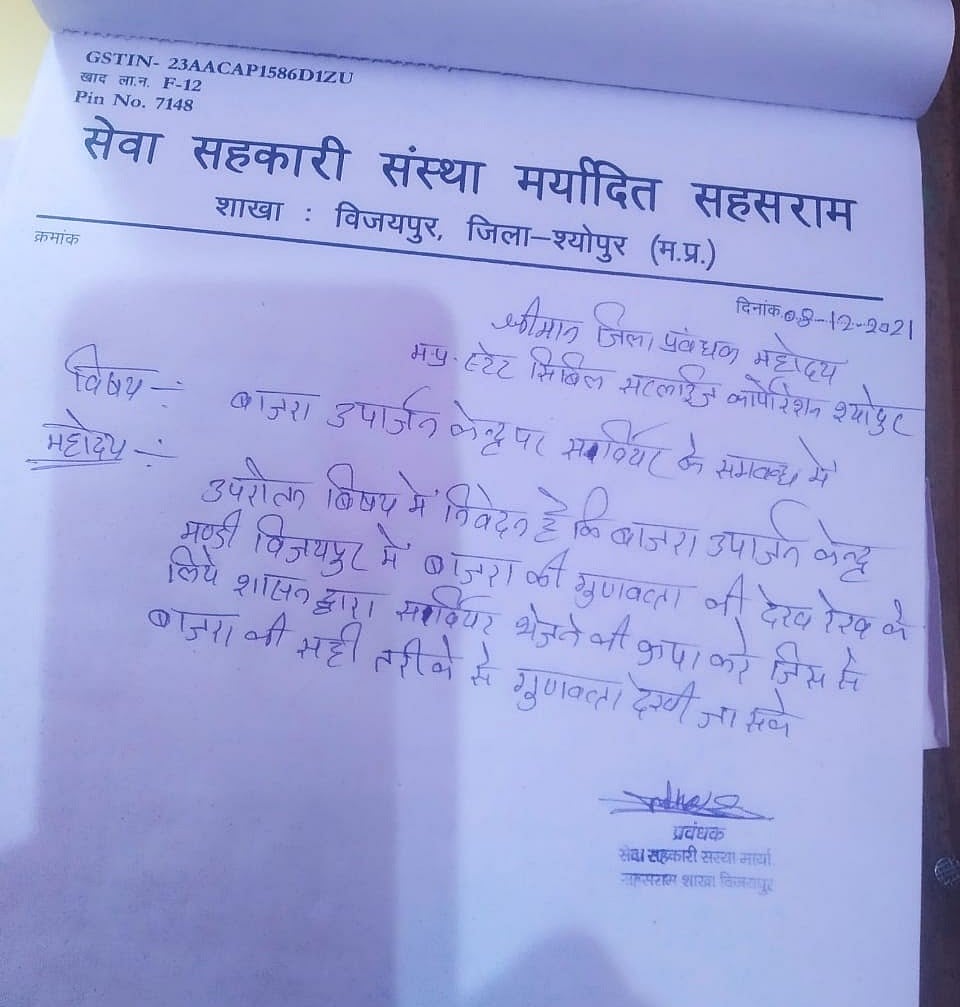 GSTIN- 23AACAP1586D1ZU
खाद ला.न. F-12
Pin No. 7148
सेवा सहकारी संस्था मर्यादित सहसराम
शाखा : विजयपुर, जिला-श्योपुर (म.प्र.)
क्रमांक
दिनांक 08-12-2021
श्रीमान जिला प्रवंधक महोदय
म.प्र. स्टेट सिबिल सटलाईज कोर्पोरेशन श्योपुर
विषय -: बाजरा उपार्जन केन्द्र पर सर्वियर के समबन्ध में
महोदय -:
उपरोक्त बिषय में निवेदन है कि बाजरा उपार्जन केन्द्र
मण्डी विजयपुर में बाजरा की गुणवत्ता की देख रेख के
लिये शासन द्वारा सर्वियर भेजने की कृपा करे जिस से
बाजरा की सही तरीके से गुणवत्ता देखी जा सके
प्रवंधक
सेवा सहकारी संस्था मार्या.
सहसराम शाखा विजयपुर